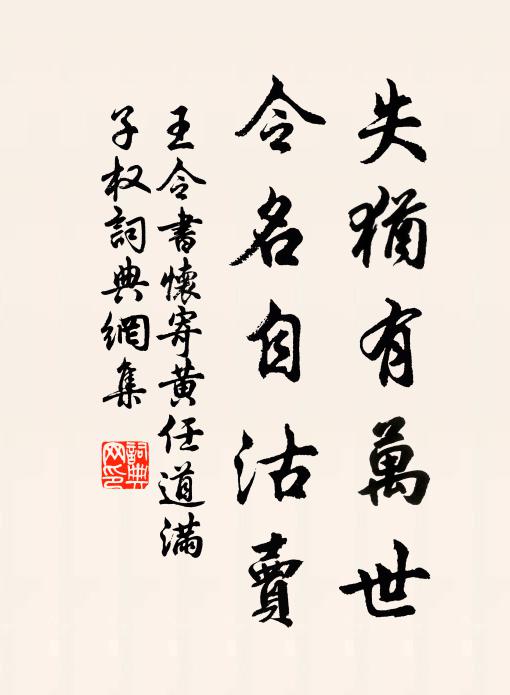 失猶有萬世
令名自沽賣
王令書懷寄黄任道滿
子权詞典網集
詞典
网印